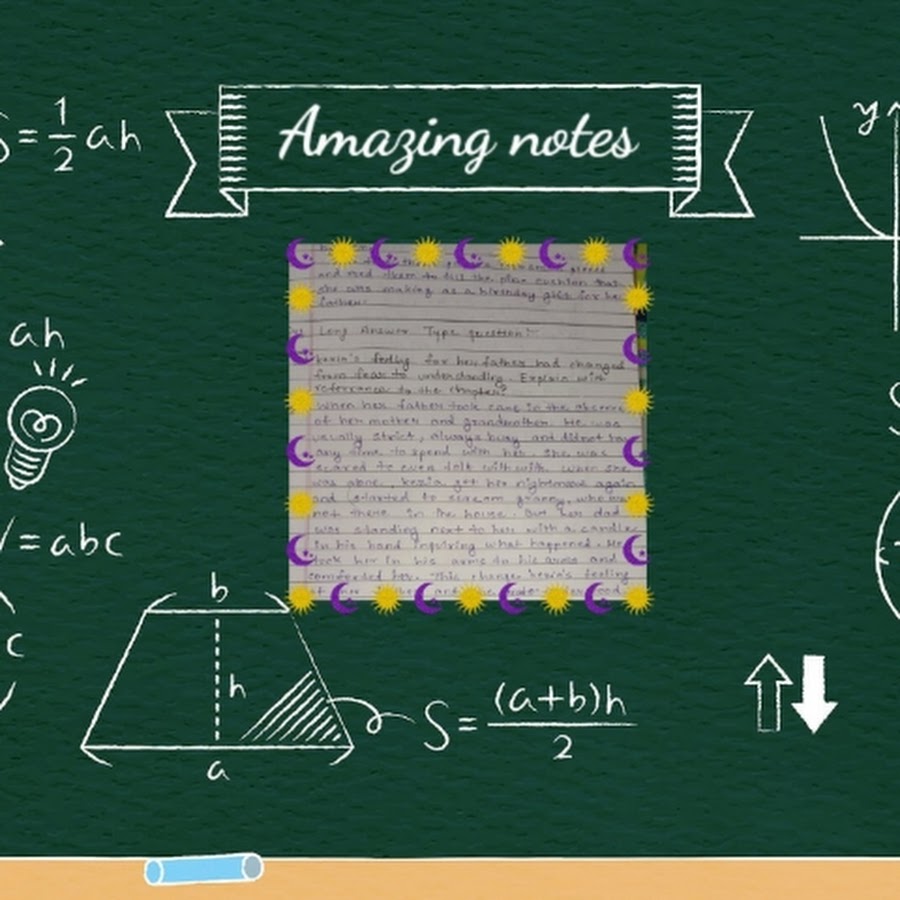 Amazing notes
S = 1/2 ah
y
ah
and
them to fill the
cushion that
she was making as a birthday gift for he
father.
Long Answer Type question:-
kezia's feeling for her father had changed
from fear to understanding. Explain with
referrance to the chapter?
When her father took care in the absence
of her mother and grandmother. He was
usually strict, always busy and didnot hav
any time to spend with her. She was
scared to even
with. when she
was alone, kezia got her nightmare again
and started to scream granny, who was
not there in the house. But her dad
was standing next to her with a candle
in his hand inquiring what happened. He
took her in his arms to his arms and
comforted her. This change kezia's feeling
V = abc
c
b
h
a
S = (a+b)h / 2